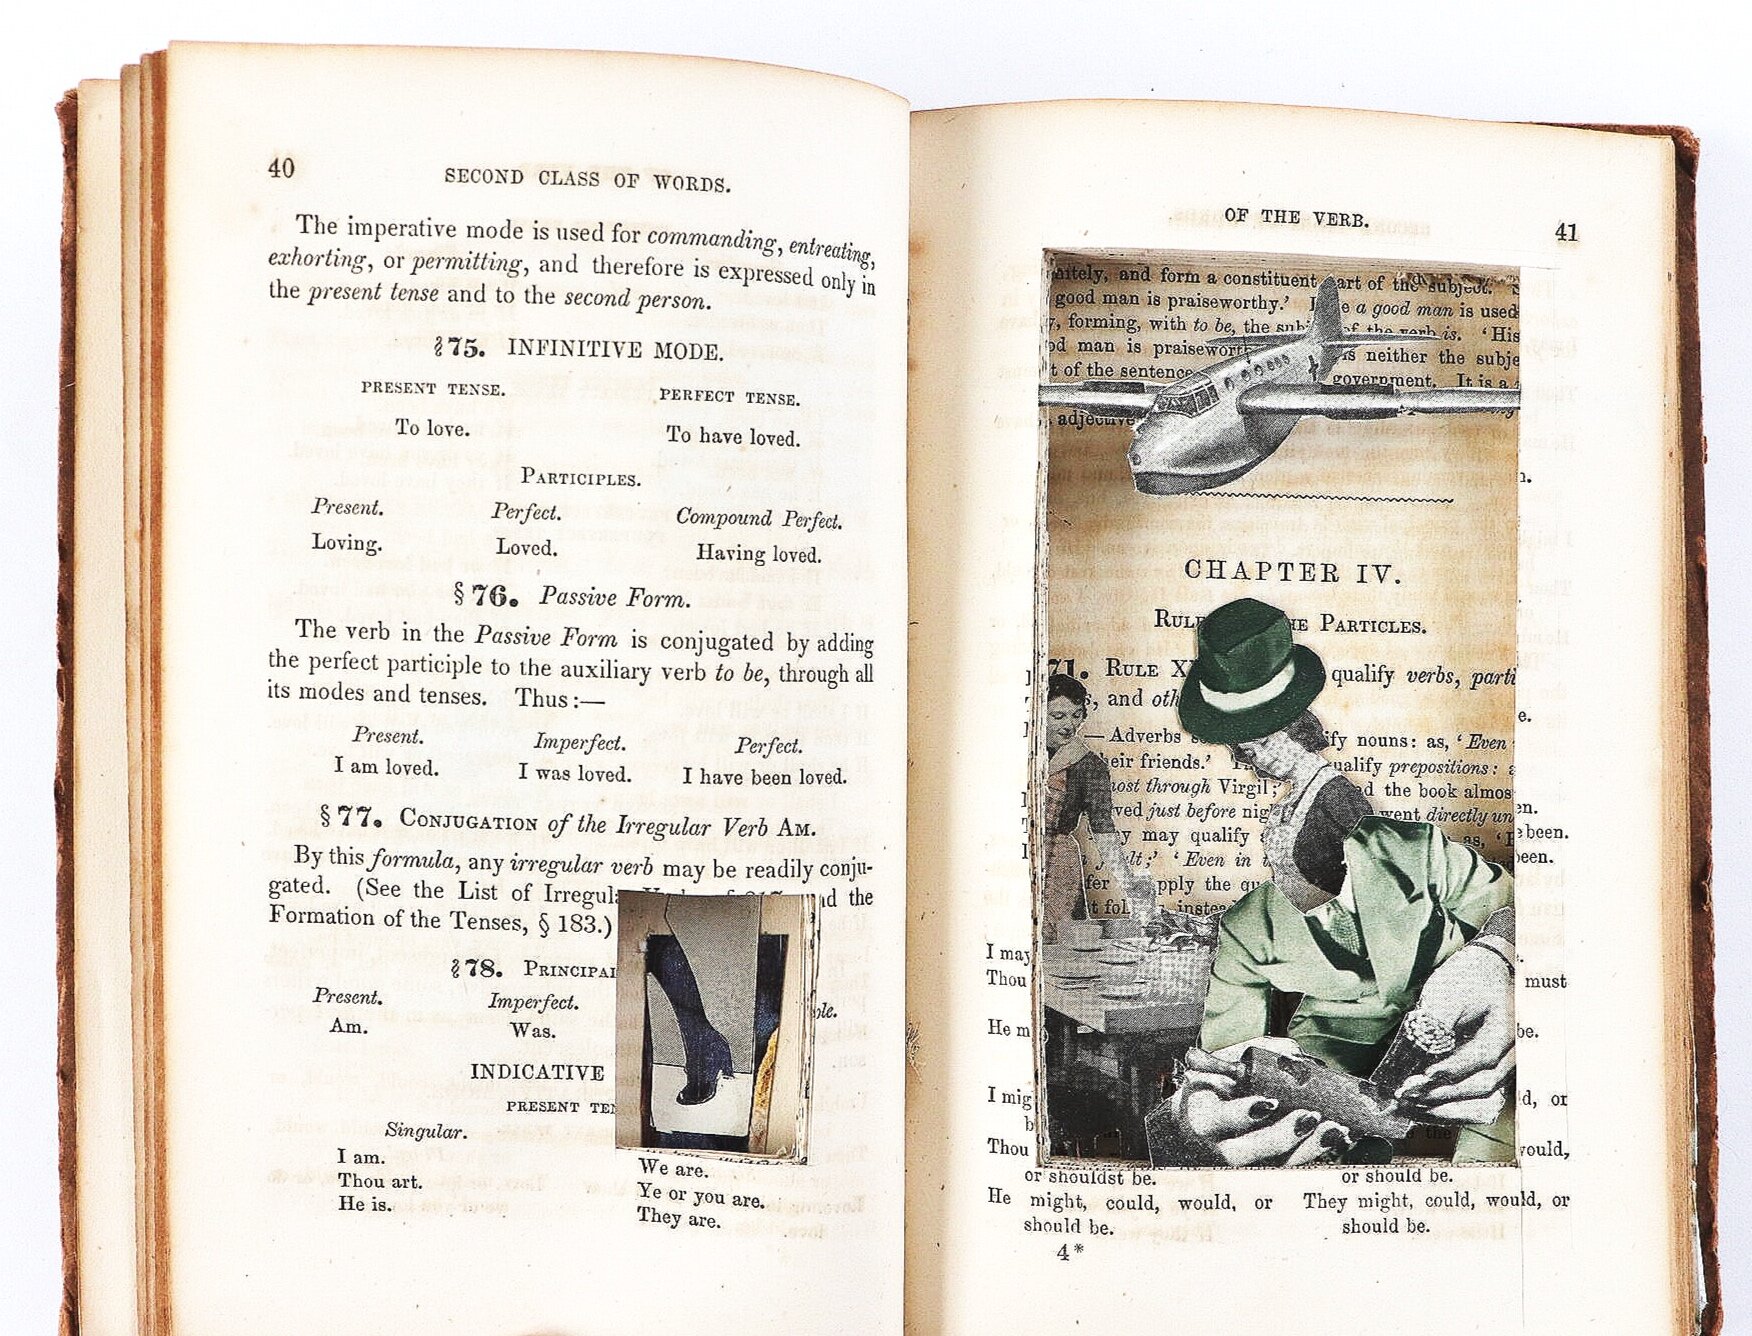 40
SECOND CLASS OF WORDS.
The imperative mode is used for commanding, entreating,
exhorting, or permitting, and therefore is expressed only in
the present tense and to the second person.
§ 75. INFINITIVE MODE.
PRESENT TENSE. PERFECT TENSE.
To love. To have loved.
PARTICIPLES.
Present. Perfect. Compound Perfect.
Loving. Loved. Having loved.
§ 76. Passive Form.
The verb in the Passive Form is conjugated by adding
the perfect participle to the auxiliary verb to be, through all
its modes and tenses. Thus:—
Present. Imperfect. Perfect.
I am loved. I was loved. I have been loved.
§ 77. CONJUGATION of the Irregular Verb AM.
By this formula, any irregular verb may be readily conju-
gated. (See the List of the
Formation of the Tenses, § 183.)
§ 78.
Present. Imperfect.
Am. Was.
INDICATIVE
PRESENT
Singular.
I am.
Thou art.
He is.
We are.
Ye or you are.
They are.
OF THE VERB.
41
and form a constituent part of the subject.
good man is praiseworthy.' a good man is used
forming, with to be, the of the verb is. 'His
man is is neither the
t of the sentence government. It is a
CHAPTER IV.
RULE PARTICLES.
71. RULE qualify verbs,
and
— Adverbs nouns: as, 'Even
their friends.' qualify prepositions:
through Virgil; the book
just before went directly
may qualify as,
'Even in been.
the
instead
I may
Thou must
He be.
I or
Thou
or shouldst be. or should be.
He might, could, would, or They might, could, would, or
should be. should be.
4*